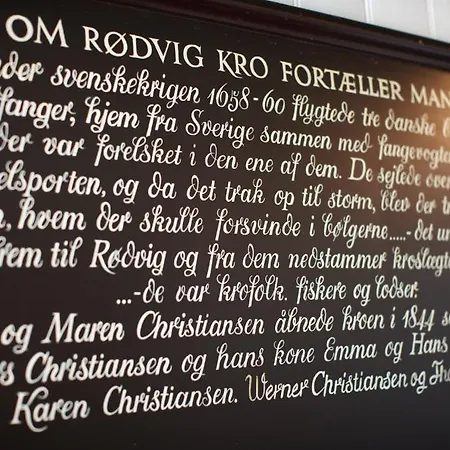 OM RØDVIG KRO FORTÆLLER MAN
svenskekrigen 1658-60 flygtede tre danske
fanger, hjem fra Sverige sammen med
der var forelsket i den ene af dem. De sejlede
og da det trak op til storm, blev der
hvem der skulle forsvinde i bølgerne.....-det
frem til Rødvig og fra dem nedstammer
...-de var krofolk. fiskere og lodser.
og Maren Christiansen åbnede kroen i 1844
Christiansen og hans kone Emma og Hans
Karen Christiansen. Werner Christiansen og